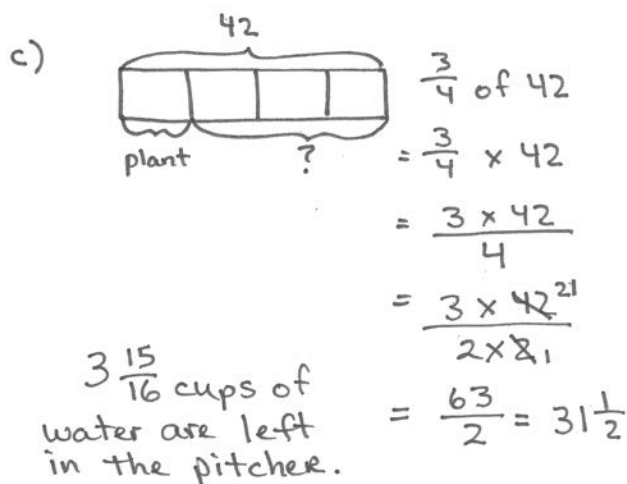 c)
42
plant
?
3/4 of 42
= 3/4 × 42
= 3 × 42 / 4
= 3 × 42 21 / 2 × 2 1
= 63/2 = 31 1/2
3 15/16 cups of
water are left
in the pitcher.